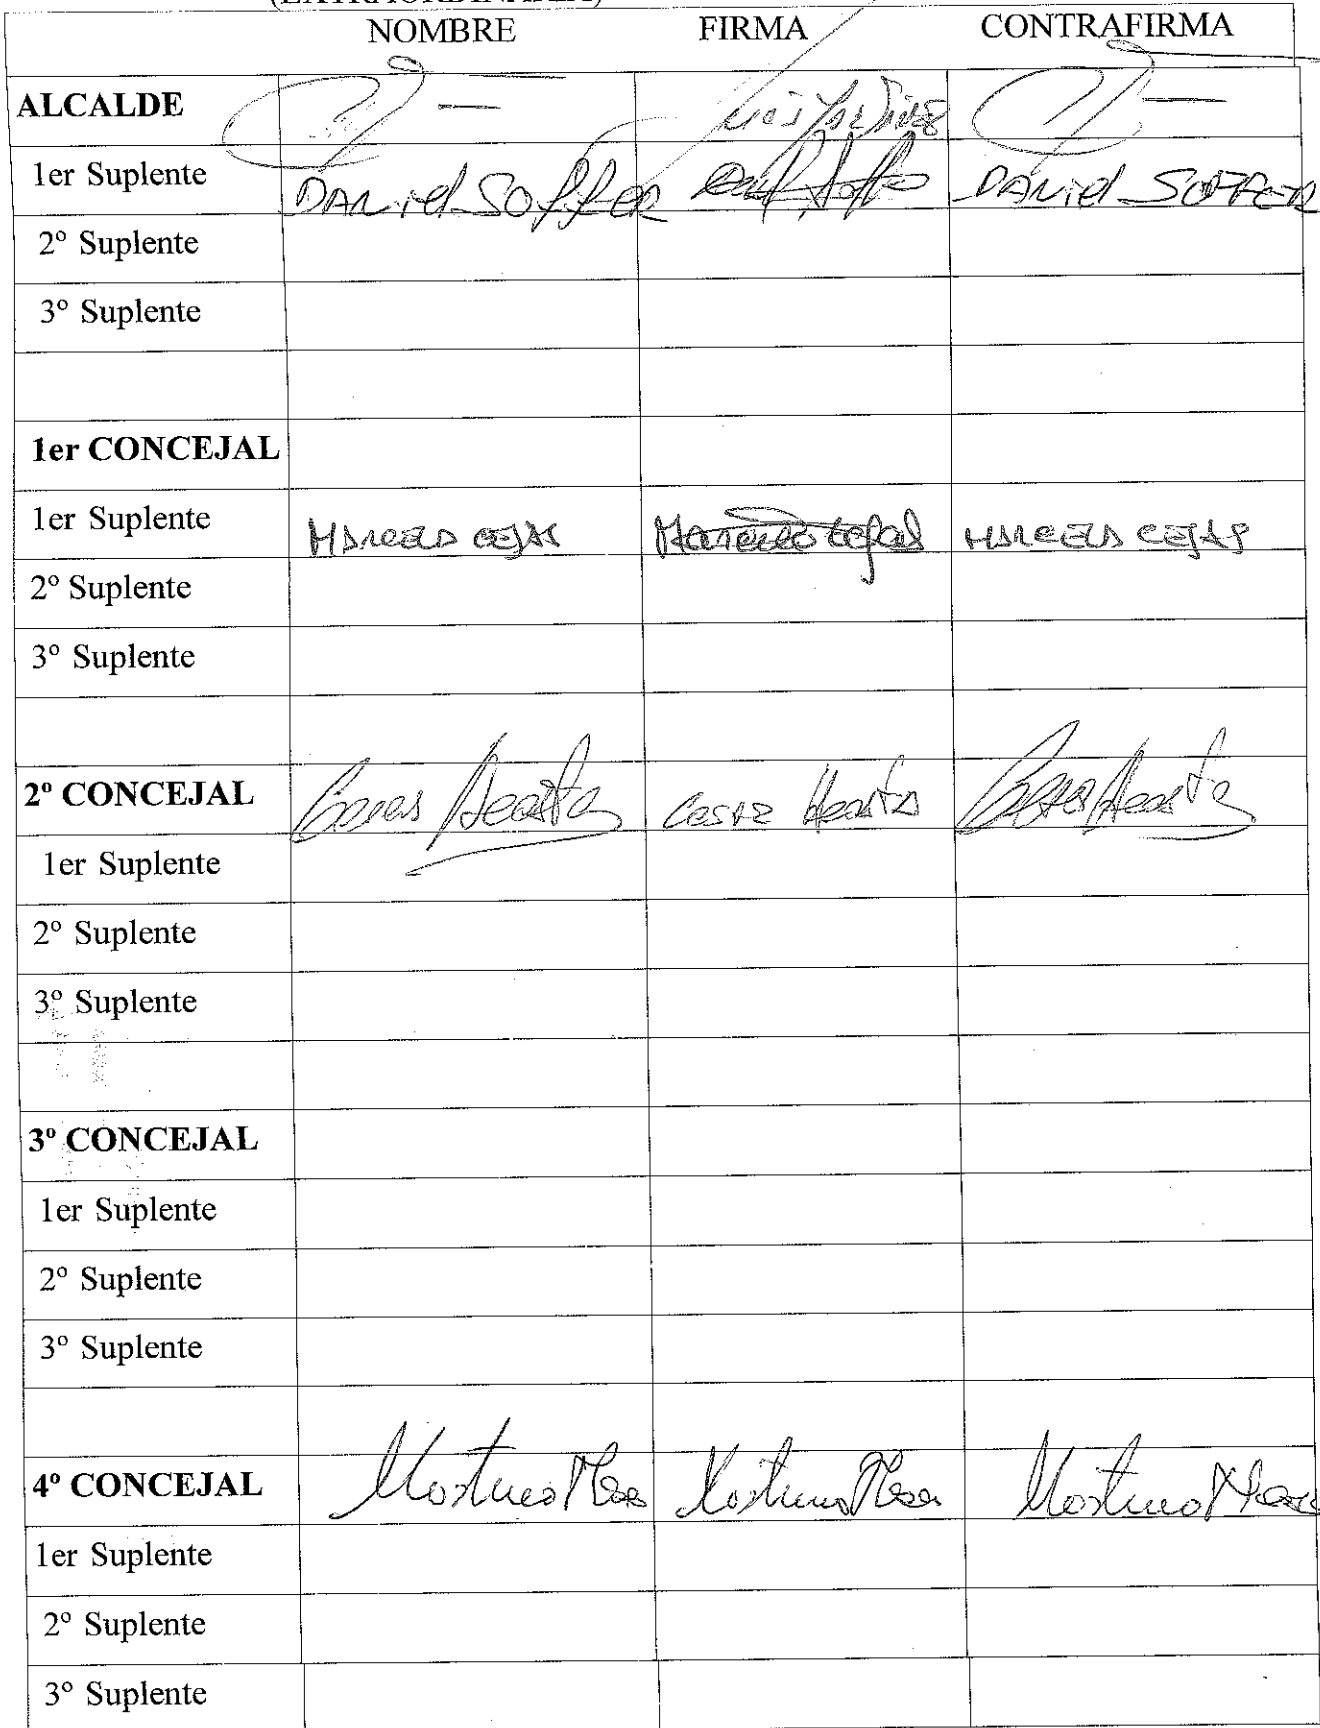 (EXTRAORDINARIA)
NOMBRE FIRMA CONTRAFIRMA
ALCALDE
1er Suplente DANiel SOffER DANiel SOFFER
2º Suplente
3º Suplente
1er CONCEJAL
1er Suplente MARCELO CEJAS Marcelo Cejas MARCELO CEJAS
2º Suplente
3º Suplente
2º CONCEJAL Cesar Acosta Cesar Acosta Cesar Acosta
1er Suplente
2º Suplente
3º Suplente
3º CONCEJAL
1er Suplente
2º Suplente
3º Suplente
4º CONCEJAL
1er Suplente
2º Suplente
3º Suplente